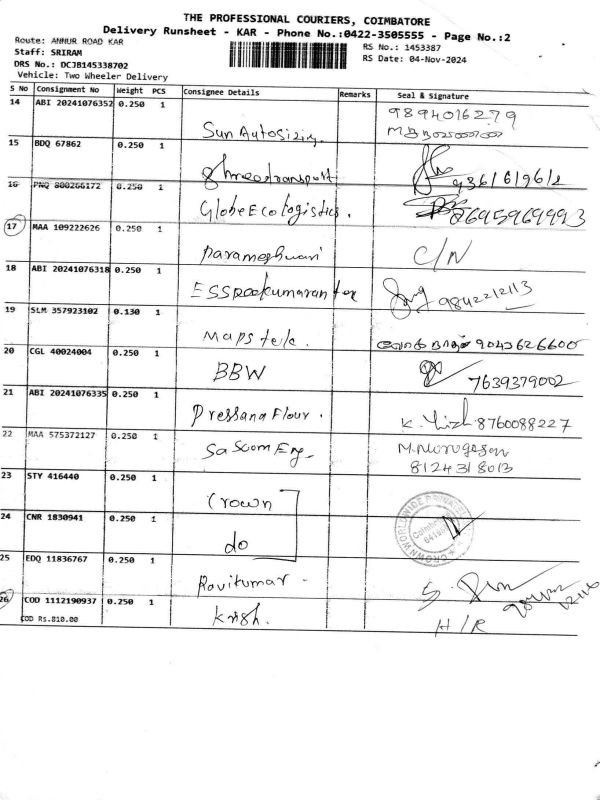 THE PROFESSIONAL COURIERS, COIMBATORE
Delivery Runsheet - KAR - Phone No.:0422-3505555 - Page No.:2
Route: ANNUR ROAD KAR
RS No.: 1453387
Staff: SRIRAM
RS Date: 04-Nov-2024
DRS No.: DCJB145338702
Vehicle: Two Wheeler Delivery
S No Consignment No Weight PCS Consignee Details Remarks Seal & Signature
14 ABI 20241076352 0.250 1 Sun Autosizing. 9894016279
15 BDQ 67862 0.250 1 Shreetransport 9361619612
16 PNQ 800266172 0.250 1 GlobeEcologistics. 8695969993
17 MAA 109222626 0.250 1 Parameshwari C/N
18 ABI 20241076318 0.250 1 ESSPeekumaran tex 9842212113
19 SLM 357923102 0.130 1 Maps tele. 9043626600
20 CGL 40024004 0.250 1 BBW 7639379002
21 ABI 20241076335 0.250 1 Pressana Flour. 8760088227
22 MAA 575372127 0.250 1 Sa Scom Eng. M.Murugesan
8124318013
23 STY 416440 0.250 1 Crown
24 CNR 1830941 0.250 1 do
25 EDQ 11836767 0.250 1 Ravikumar -
26 COD 1112190937 0.250 1 Krish. H/R
COD Rs.810.00